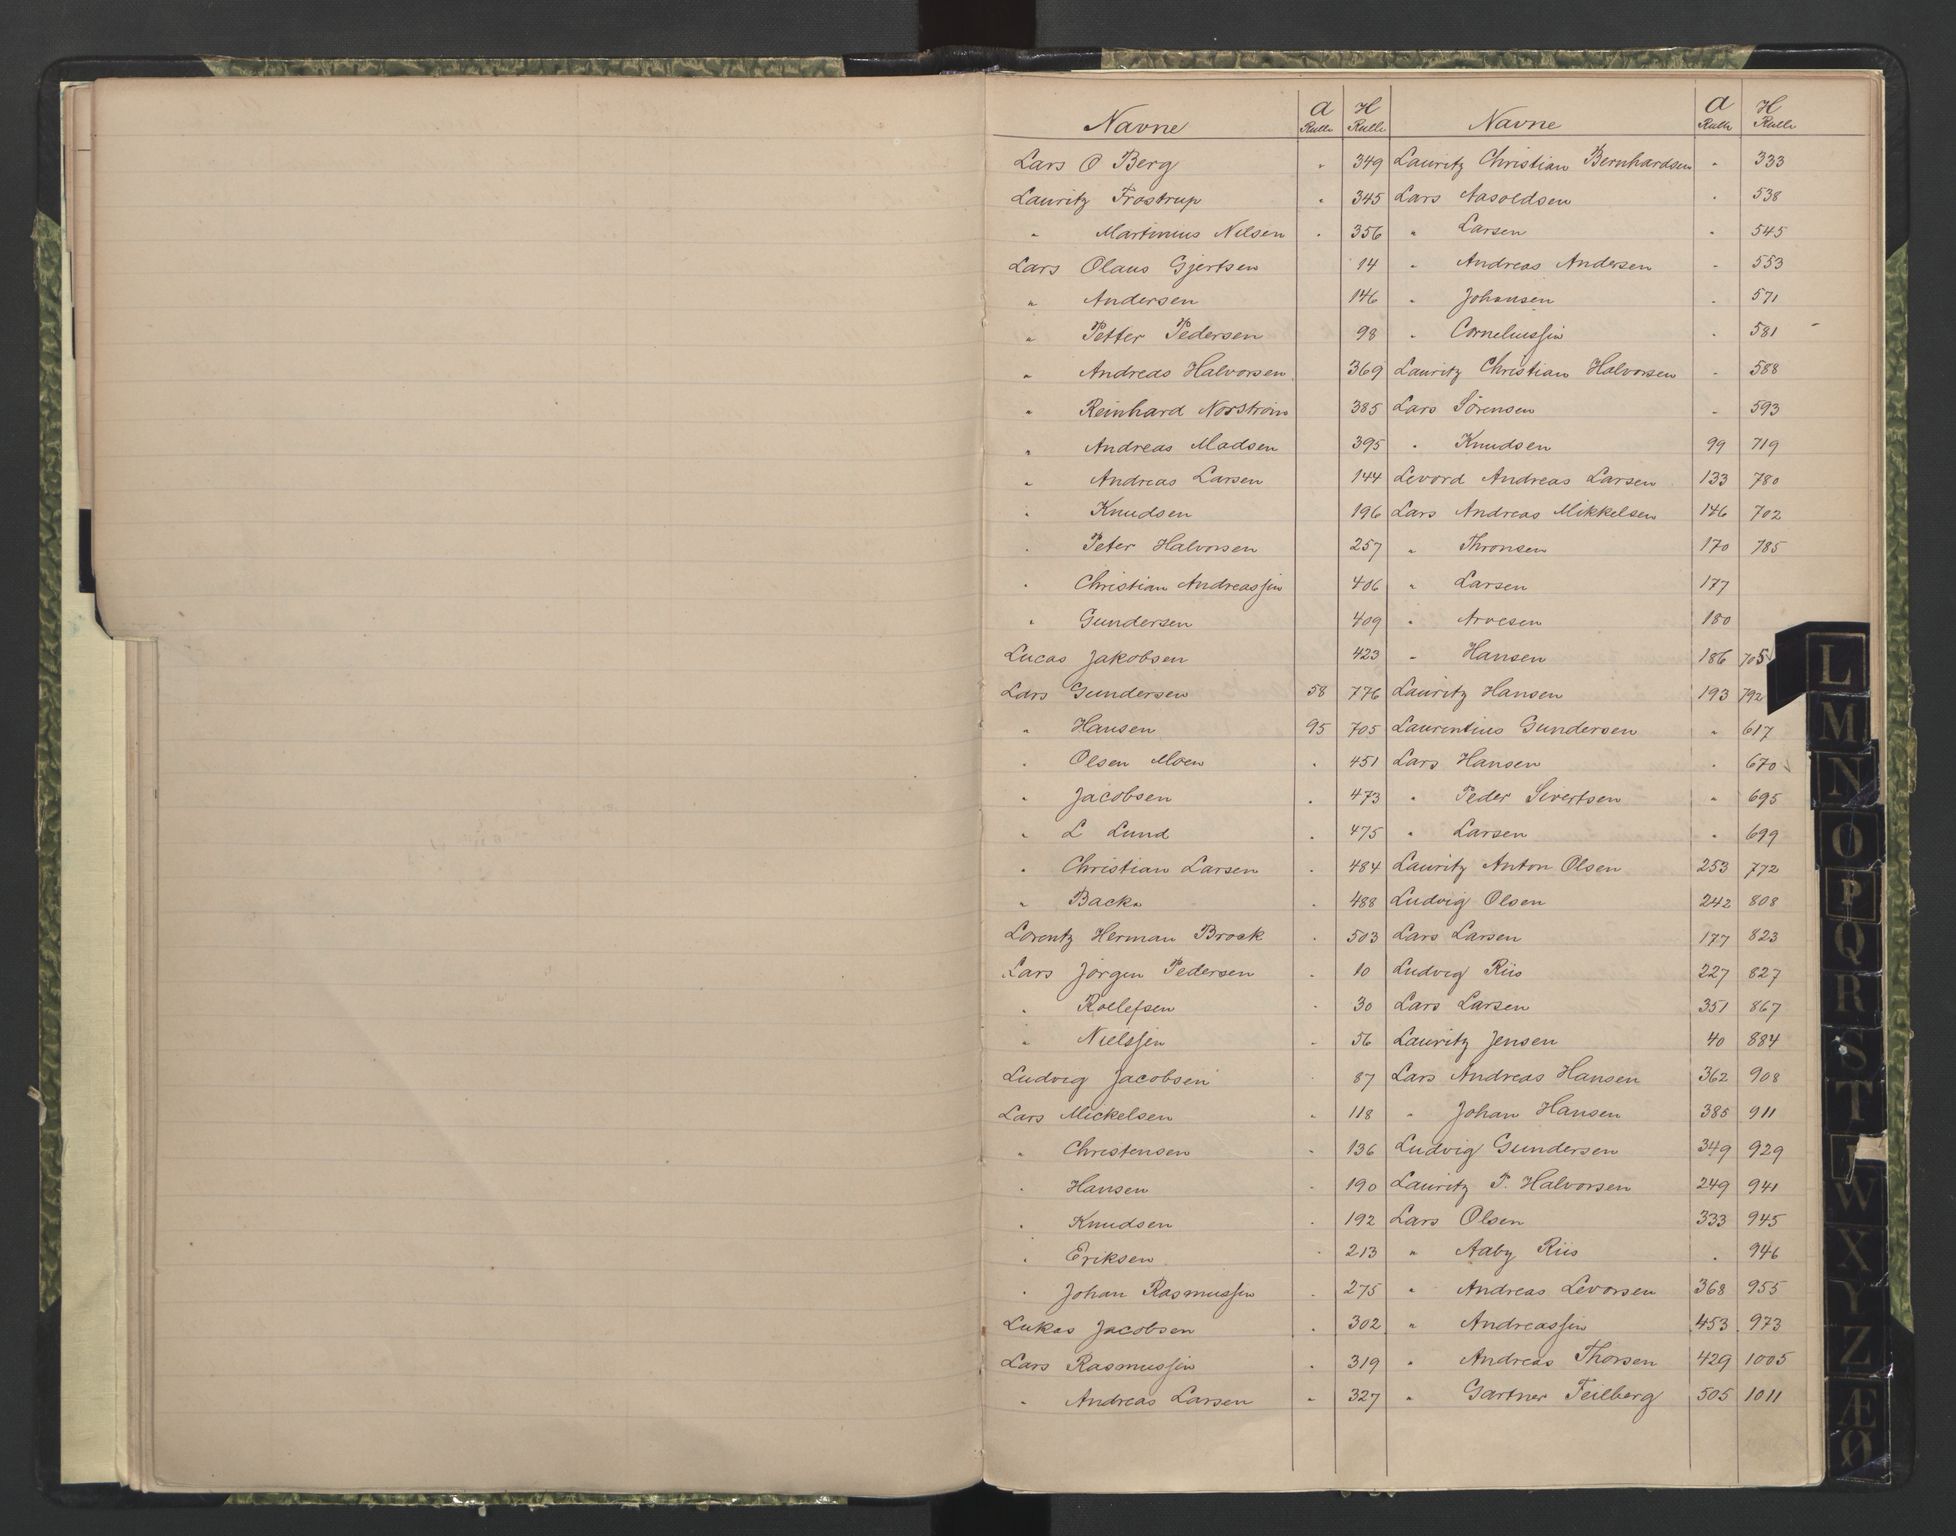 Navne A Rulle H Rulle
Lars O Berg " 349
Lauritz Frostrup " 345
" Martinius Nilsen " 356
Lars Olaus Gjertsen 14
" Andersen 146
" Petter Pedersen 98
" Andreas Halvorsen 369
" Reinhard Norstrøm 385
" Andreas Madsen 395
" Andreas Larsen 144
" Knudsen 196
" Peter Halvorsen 257
" Christian Andreassen 406
" Gundersen 409
Lucas Jakobsen 423
Lars Gundersen 58 776
" Hansen 95 705
" Olsen Moen " 451
" Jacobsen " 473
" L Lund " 475
" Christian Larsen " 484
" Backe " 488
Lorentz Herman Brock " 503
Lars Jørgen Pedersen " 10
" Rollefsen " 30
" Nielssen " 56
Ludvig Jacobsen " 87
Lars Mickelsen " 118
" Christensen " 136
" Hansen " 190
" Knudsen " 192
" Eriksen " 213
" Johan Rasmussen " 275
Lukas Jacobsen " 302
Lars Rasmussen " 319
" Andreas Larsen " 327
Navne A Rulle H Rulle
Lauritz Christian Bernhardsen " 333
Lars Aasoldsen " 538
" Larsen " 545
" Andreas Andersen " 553
" Johansen " 571
" Corneliussen " 581
Lauritz Christian Halvorsen " 588
Lars Sørensen " 593
" Knudsen 99 719
Levord Andreas Larsen 133 780
Lars Andreas Mikkelsen 146 702
" Thronsen 170 785
" Larsen 177
" Arvesen 180
" Hansen 186 705
Lauritz Hansen 193 792
Laurentius Gundersen " 617
Lars Hansen " 670
" Peder Sivertsen " 695
" Larsen " 699
Lauritz Anton Olsen 253 772
Ludvig Olsen 242 808
Lars Larsen 177 823
Ludvig Riis 227 827
Lars Larsen 351 867
Lauritz Jensen 40 884
Lars Andreas Hansen 362 908
" Johan Hansen 385 911
Ludvig Gundersen 349 929
Lauritz P. Halvorsen 249 941
Lars Olsen 333 945
" Aaby Riis " 946
" Andreas Levorsen 368 955
" Andreassen 453 973
" Andreas Thorsen 429 1005
" Gartner Teilberg 505 1011
L
M
N
O
P
Q
R
S
T
W
X
Y
Z
Æ
Ø